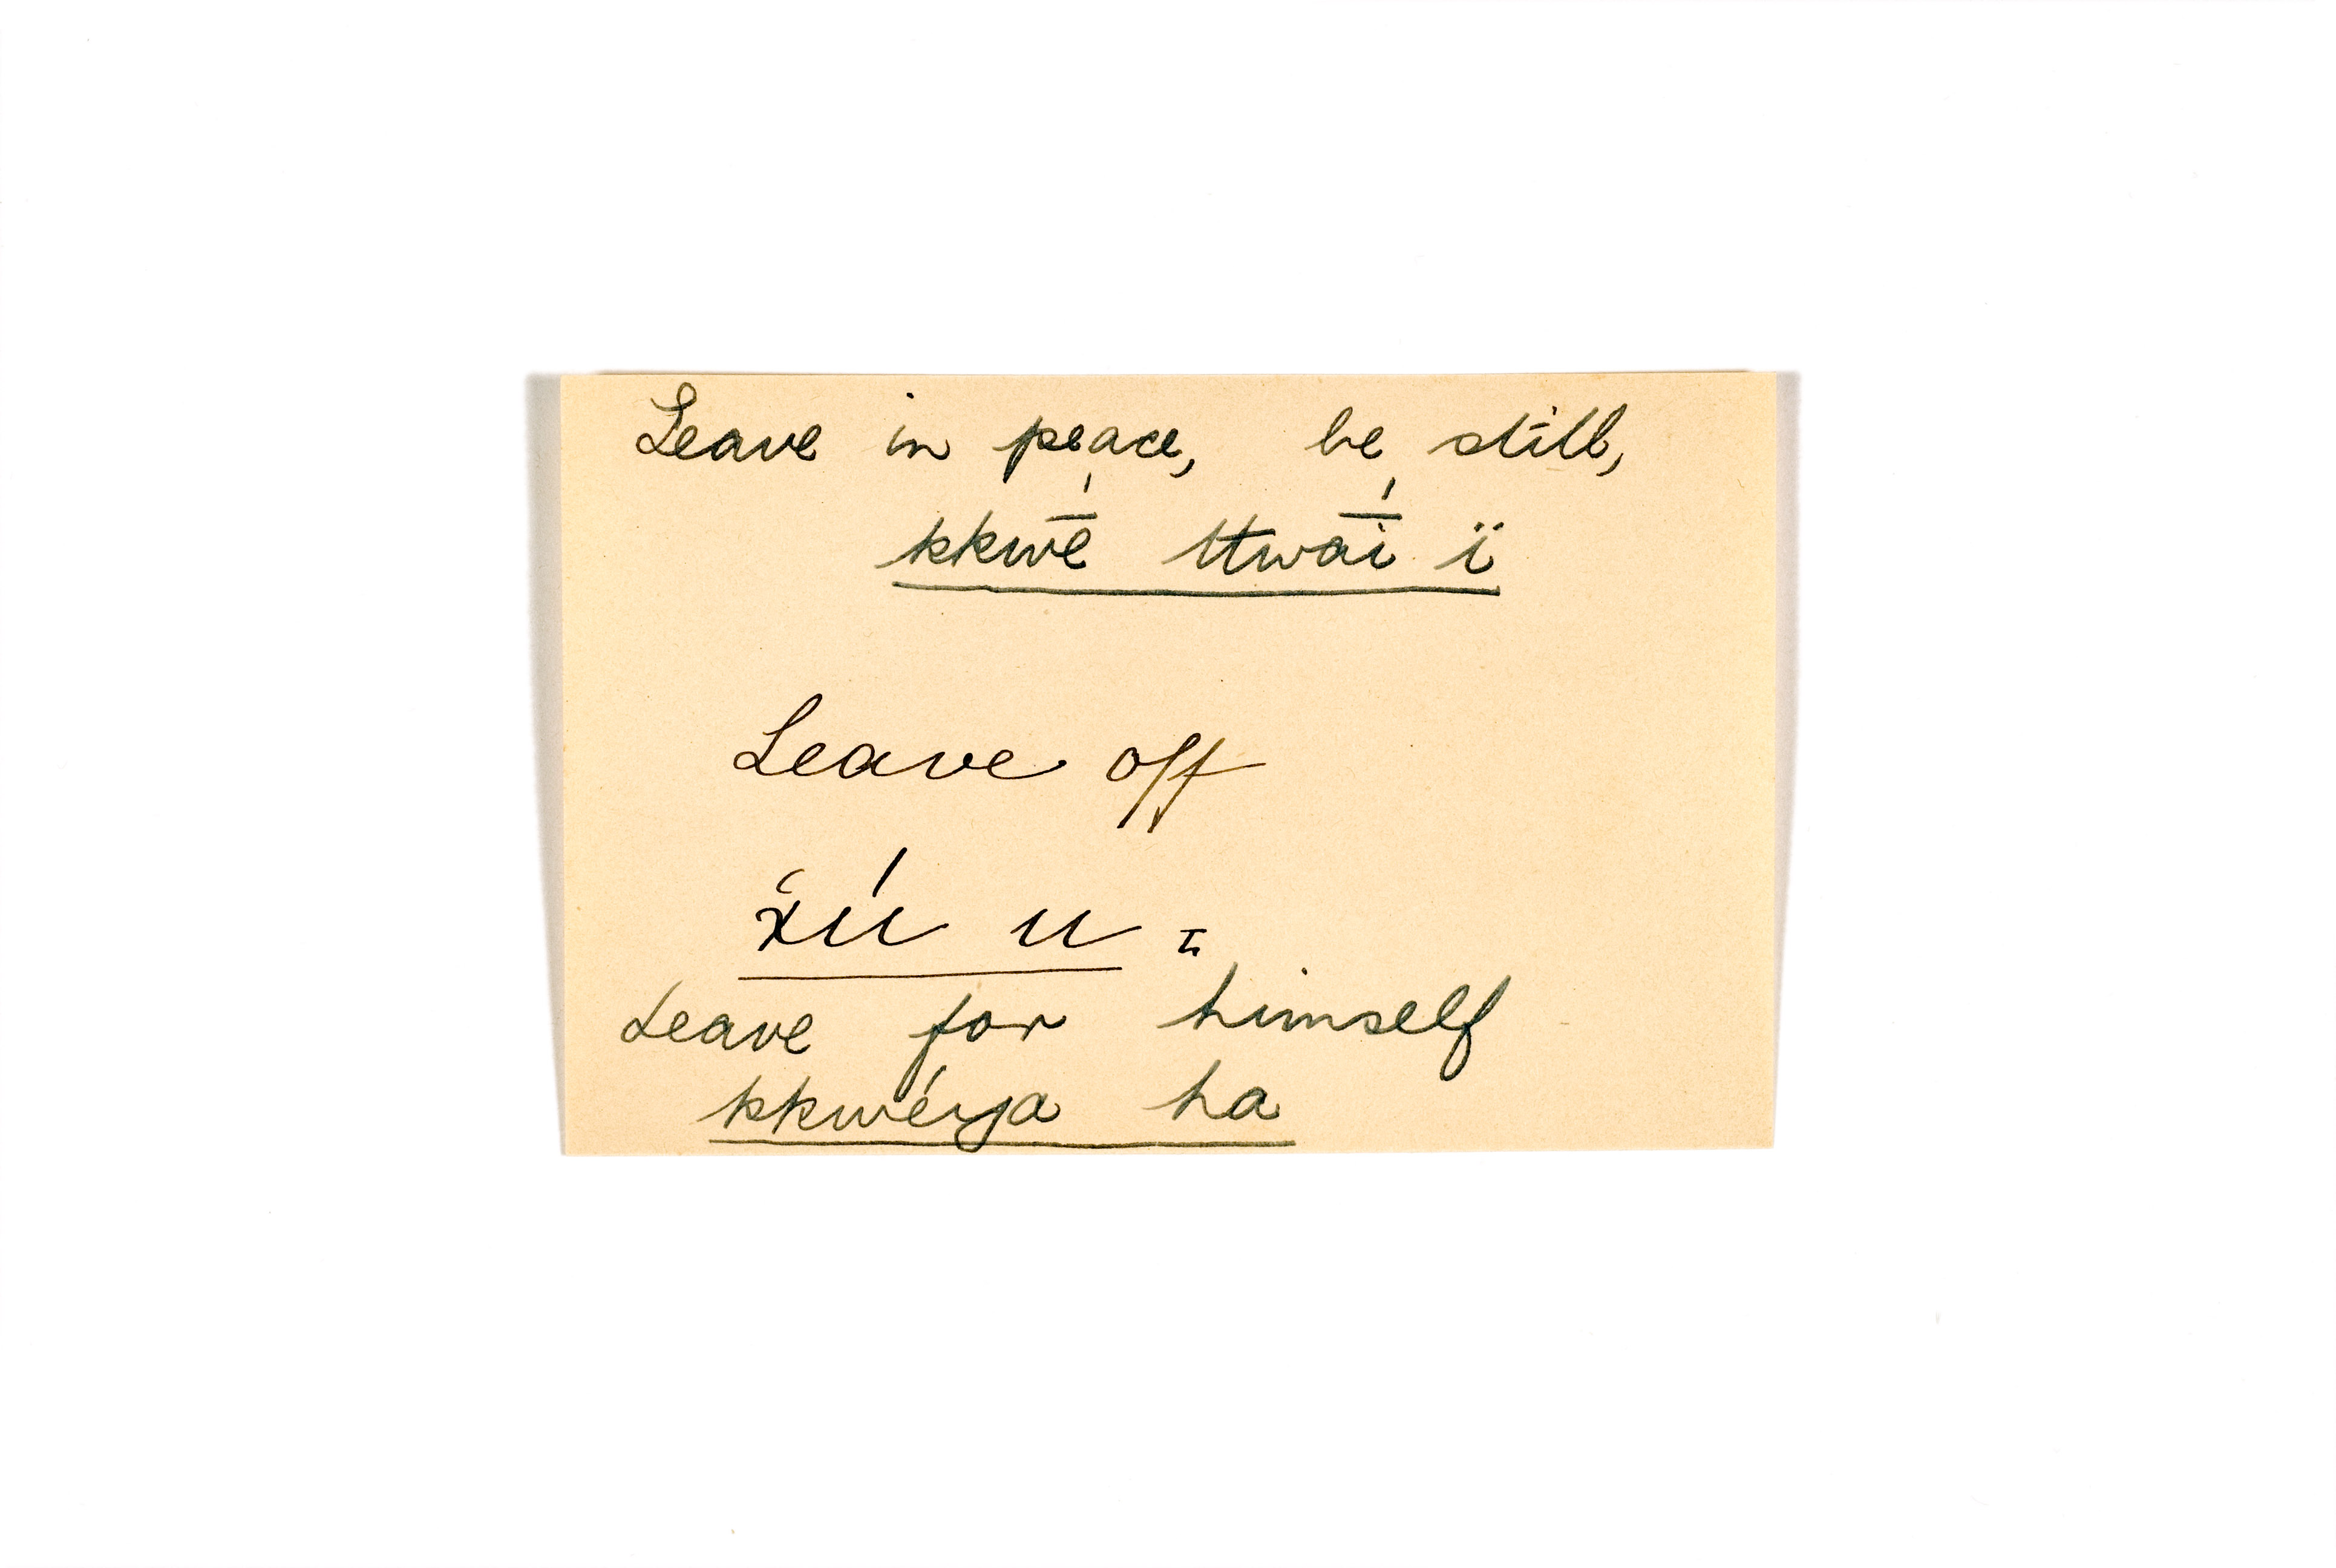 Leave in peace, be still,
kkwē̍ ttwāi̍ ï
Leave off
x̆ú u =
Leave for himself
kkwérya ha